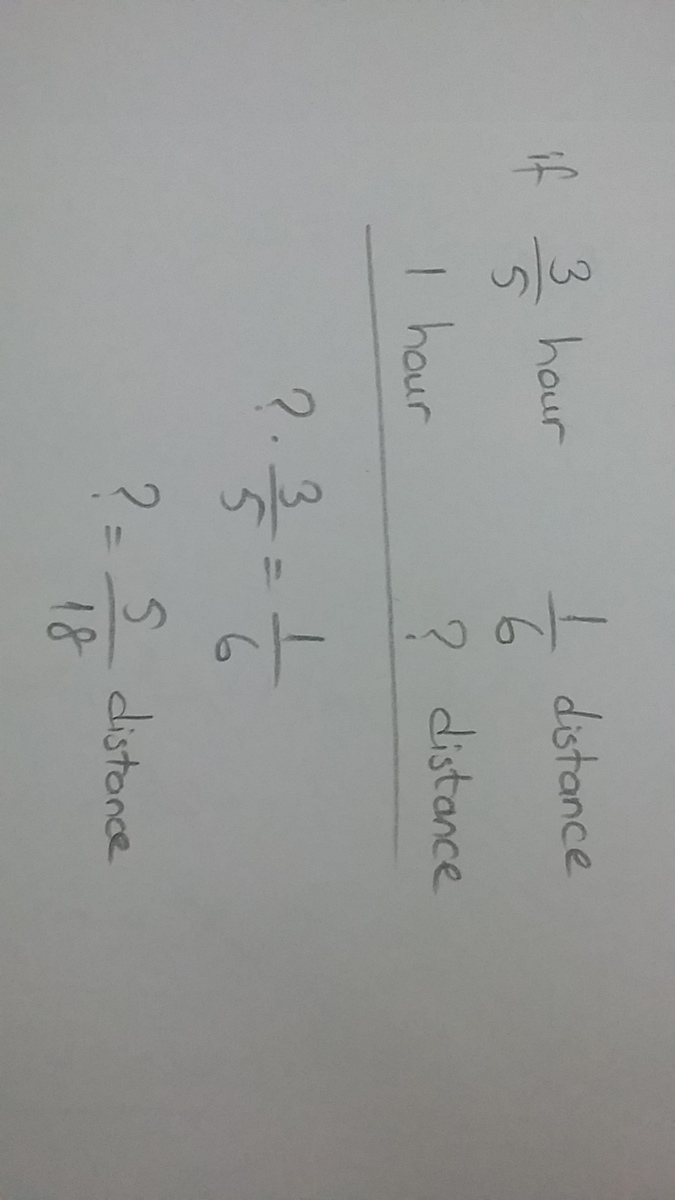 if 3/5 hour 1/6 distance
1 hour ? distance
? · 3/5 = 1/6
? = 5/18 distance